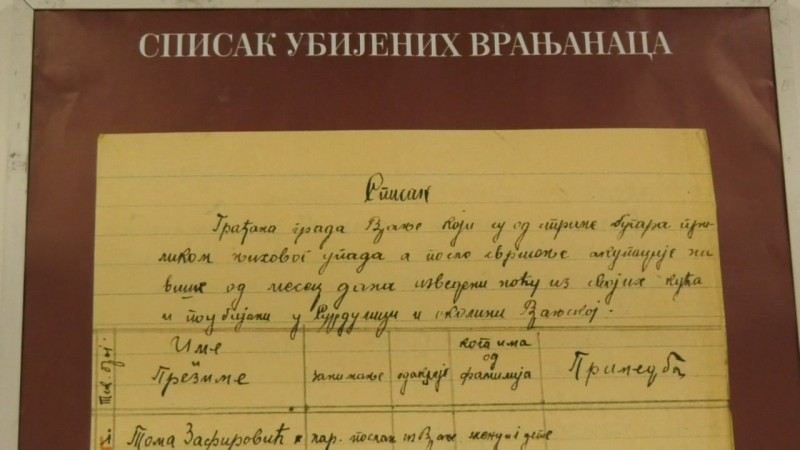 СПИСАК УБИЈЕНИХ ВРАЊАНАЦА
Списак
Грађана града Врање који су од стране бугара при-
ликом њиховог упада а после свршене окупације на
више од месец дана изведени ноћу из својих кућа
и поубијани у Сурдулици и околини Врањској.
Тек. број.
Име и Презиме
занимање
одакле је
кога има од фамилија
Примедба
1. Тома Зафировић
нар. посланик
из Врање
жену и 1 дете